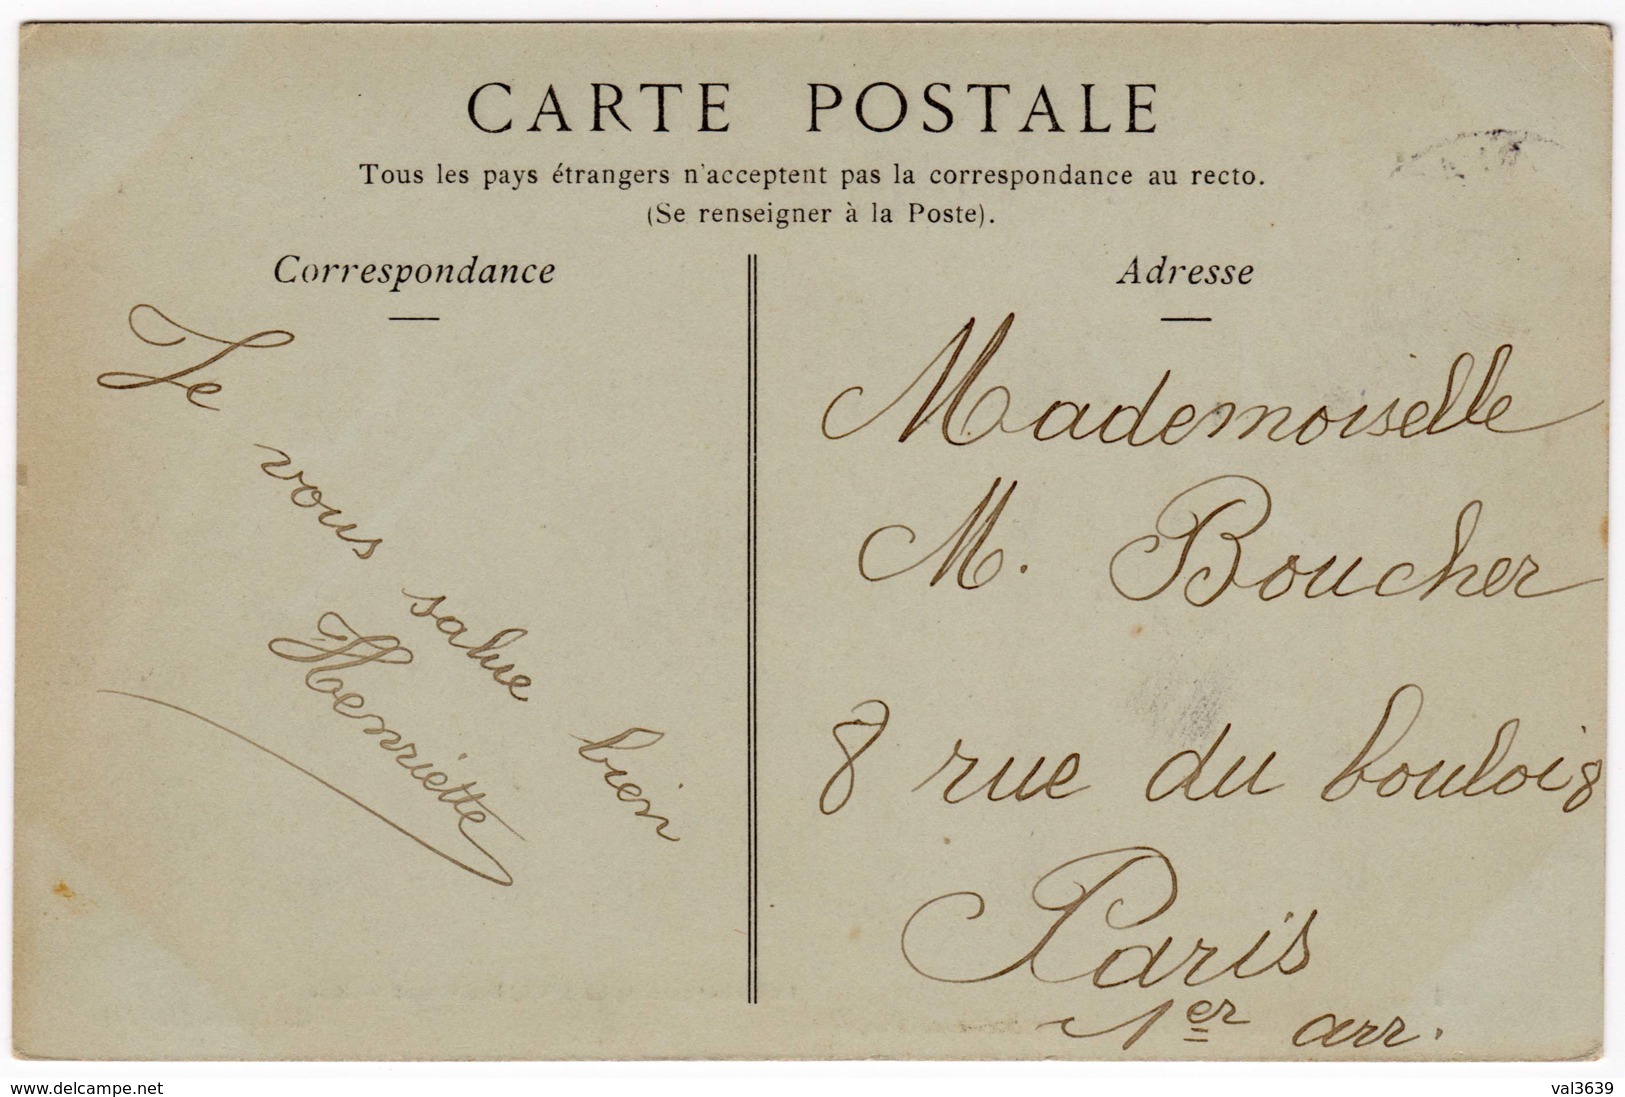 CARTE POSTALE
Tous les pays étrangers n'acceptent pas la correspondance au recto.
(Se renseigner à la Poste).
Correspondance
Je vous salue bien
Henriette
Adresse
Mademoiselle
M. Boucher
8 rue du bouloi 8
Paris
1er arr.
www.delcampe.net
val3639